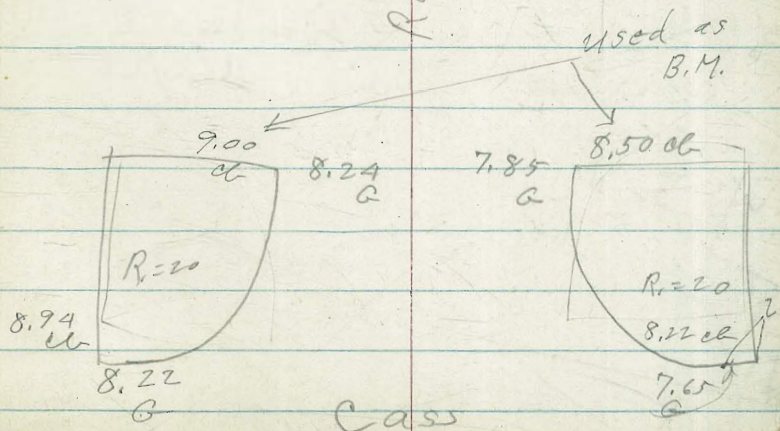 R
used as
B.M.
9.00
cb
8.24
G
7.85
G
8.50 cb
R=20
R=20
8.94
cb
8.22 cb
8.22
G
7.65
G
Cass